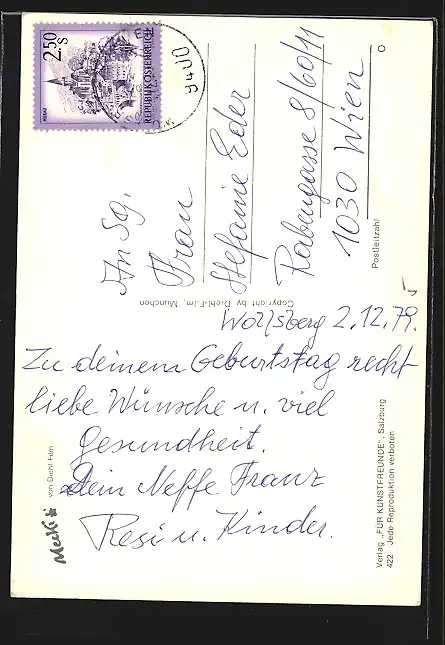 2.50
S
REPUBLIK ÖSTERREICH
9400
An Sg.
Frau
Stefanie Eder
Rabengasse 8/60/11
1030 Wien
Postleitzahl
Copyright by Diehl-Film, München
Wolfsberg 2.12.79.
Zu deinem Geburtstag recht
liebe Wünsche u. viel
Gesundheit.
Dein Neffe Franz
Resi u. Kinder.
Mecki
von Diehl-Film
Verlag „FÜR KUNSTFREUNDE", Salzburg
422 Jede Reproduktion verboten